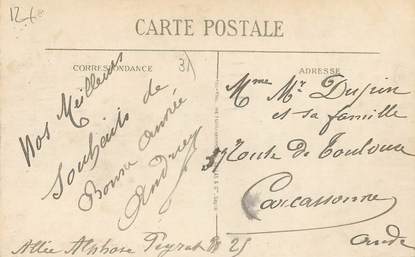 CARTE POSTALE
CORRESPONDANCE
ADRESSE
Nos Meilleurs
Souhaits de
Bonne Année
Mme Mr
et sa famille
Route de Toulouse
Carcassonne
Aude
Allée Alphonse Peyrat N 25